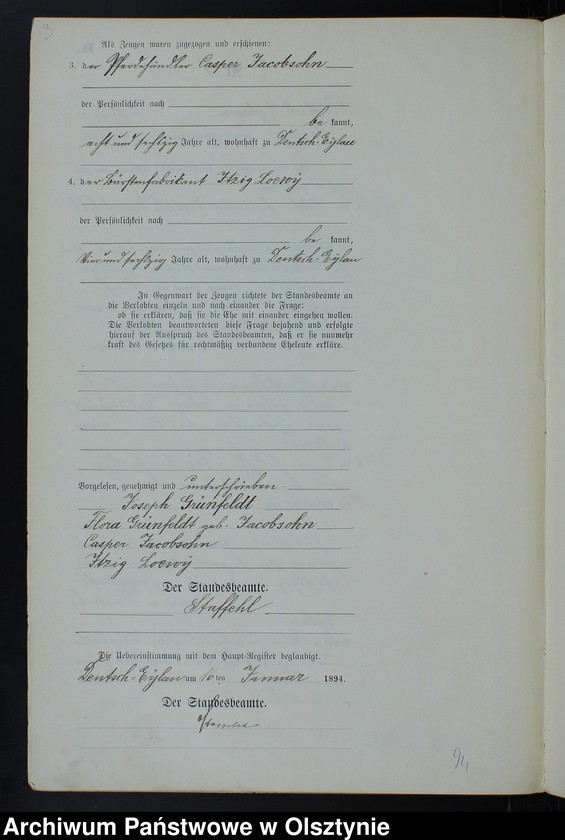 Als Zeugen waren zugezogen und erschienen:
3. der Pferdehändler Casper Jacobsohn
der Persönlichkeit nach
be kannt,
acht und sechszig Jahre alt, wohnhaft zu Deutsch-Eylau
4. der Bürstenfabrikant Itzig Loewÿ
der Persönlichkeit nach
be kannt,
vier und sechszig Jahre alt, wohnhaft zu Deutsch-Eylau
In Gegenwart der Zeugen richtete der Standesbeamte an
die Verlobten einzeln und nach einander die Frage:
ob sie erklären, daß sie die Ehe mit einander eingehen wollen.
Die Verlobten beantworteten diese Frage bejahend und erfolgte
hierauf der Ausspruch des Standesbeamten, daß er sie nunmehr
kraft des Gesetzes für rechtmäßig verbundene Eheleute erkläre.
Vorgelesen, genehmigt und unterschrieben
Joseph Grünfeldt
Flora Grünfeldt geb. Jacobsohn
Casper Jacobsohn
Itzig Loewÿ
Der Standesbeamte.
Staffehl
Die Uebereinstimmung mit dem Haupt-Register beglaubigt.
Deutsch-Eylau am 16 ten Januar 1894.
Der Standesbeamte.
94
Archiwum Państwowe w Olsztynie